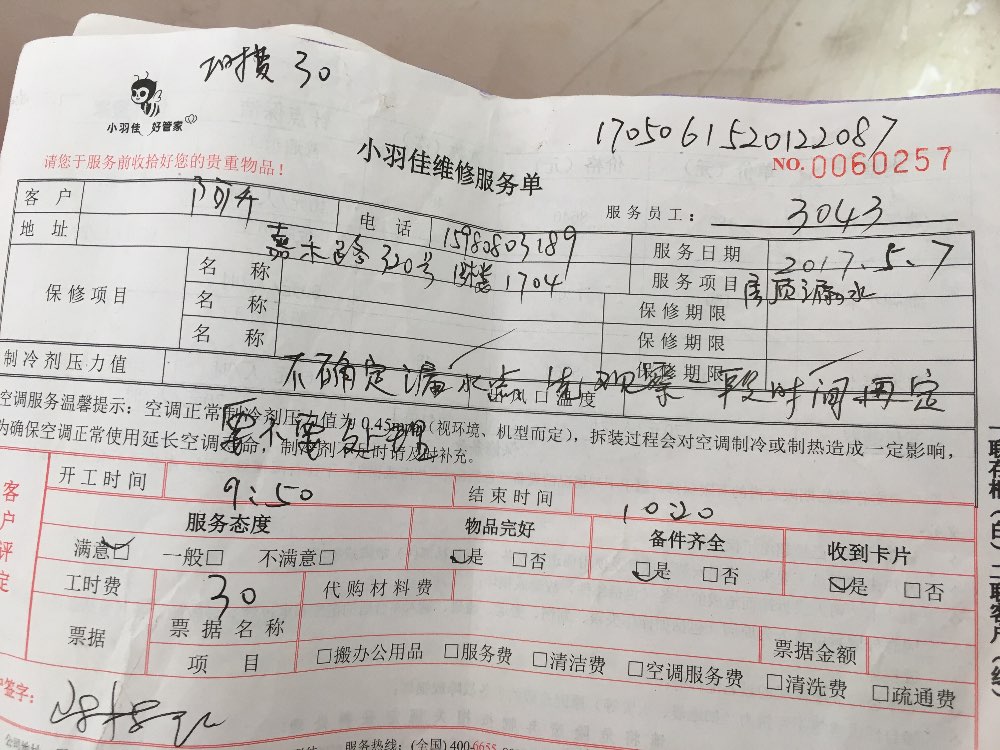 工时费 30
小羽佳 好管家
1705061520122087
请您于服务前收拾好您的贵重物品！
小羽佳维修服务单
NO. 0060257
服务员工： 3043
客户 电话 15980803189
地址 嘉禾路320号 楼1704
服务日期 2017.5.7
保修项目 名称 服务项目 房顶漏水
名称 保修期限
名称 保修期限
保修期限
制冷剂压力值 出风口温度
不确定漏水点，先观察一段时间再定
要不要处理
空调服务温馨提示：空调正常制冷剂压力值为0.45 (视环境、机型而定)，拆装过程会对空调制冷或制热造成一定影响，
为确保空调正常使用延长空调寿命，制冷剂不足时请及时补充。
开工时间 9:50 结束时间 10:20
客户评定
服务态度 物品完好 备件齐全 收到卡片
满意☑ 一般□ 不满意□ ☑是 □否 ☑是 □否 ☑是 □否
工时费 30 代购材料费
票据 票据名称 票据金额
项目 □搬办公用品 □服务费 □清洁费 □空调服务费 □清洗费 □疏通费
签字：
服务热线：(全国) 400-6655